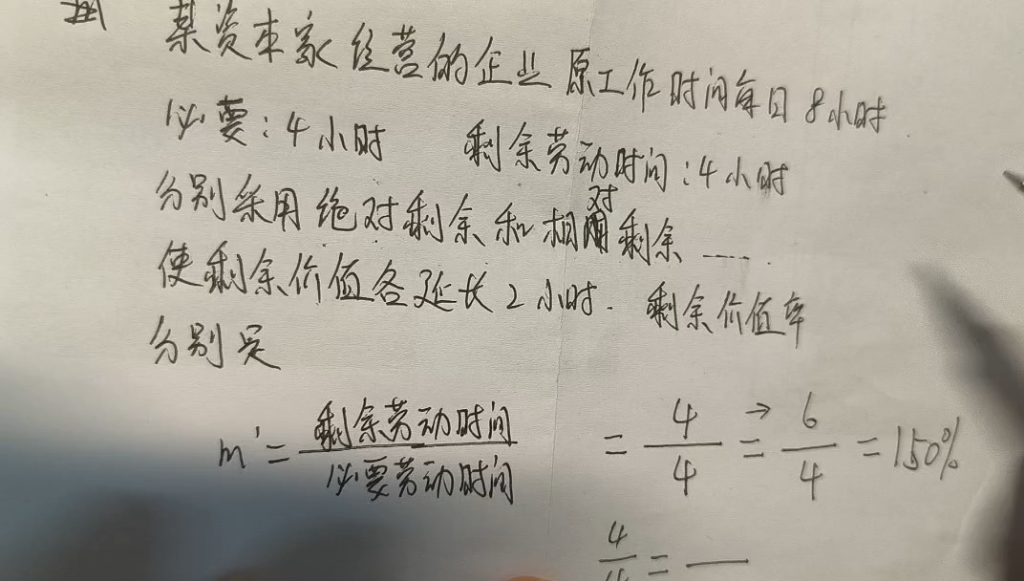 某资本家经营的企业原工作时间每日8小时
必要:4小时 剩余劳动时间:4小时
分别采用绝对剩余和相对剩余……
使剩余价值各延长2小时. 剩余价值率
分别是
m' = 剩余劳动时间/必要劳动时间 = 4/4 →= 6/4 = 150%
4/4 = —